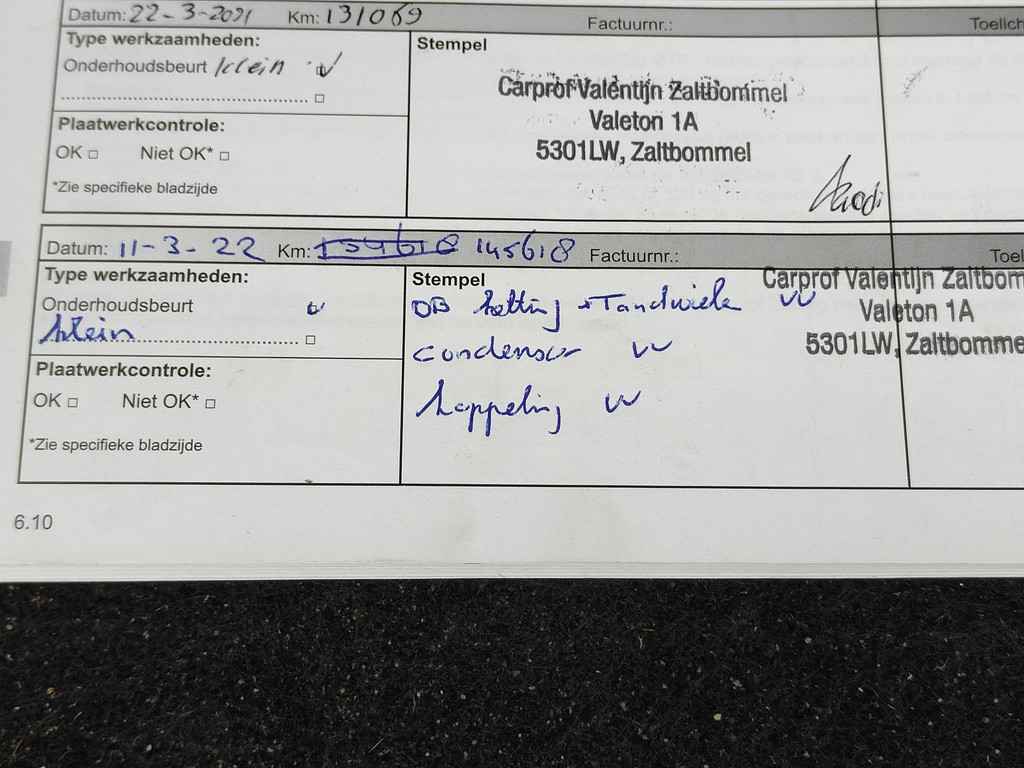 Datum: 22-3-2021 Km: 131069 Factuurnr.: Toelich
Type werkzaamheden:
Onderhoudsbeurt klein
Stempel
Carprof Valentijn Zaltbommel
Valeton 1A
5301LW, Zaltbommel
Plaatwerkcontrole:
OK □ Niet OK* □
*Zie specifieke bladzijde
Datum: 11-3-22 Km: 145618 Factuurnr.: Toel
Type werkzaamheden:
Onderhoudsbeurt
klein
Stempel
Carprof Valentijn Zaltbom
Valeton 1A
5301LW, Zaltbomme
DB ketting + Tandwiele VV
condensor VV
koppeling VV
Plaatwerkcontrole:
OK □ Niet OK* □
*Zie specifieke bladzijde
6.10